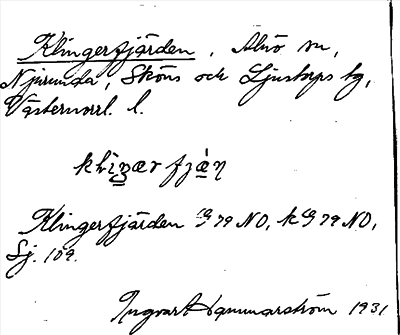 Klingerfjärden, Alnö sn,
Njurunda, Sköns och Ljustorps tg,
Västernorrl. l.
Klingerfjärden G 79 NO, k G 79 NO,
Sj. 109.
Ingvart Hammarström 1931